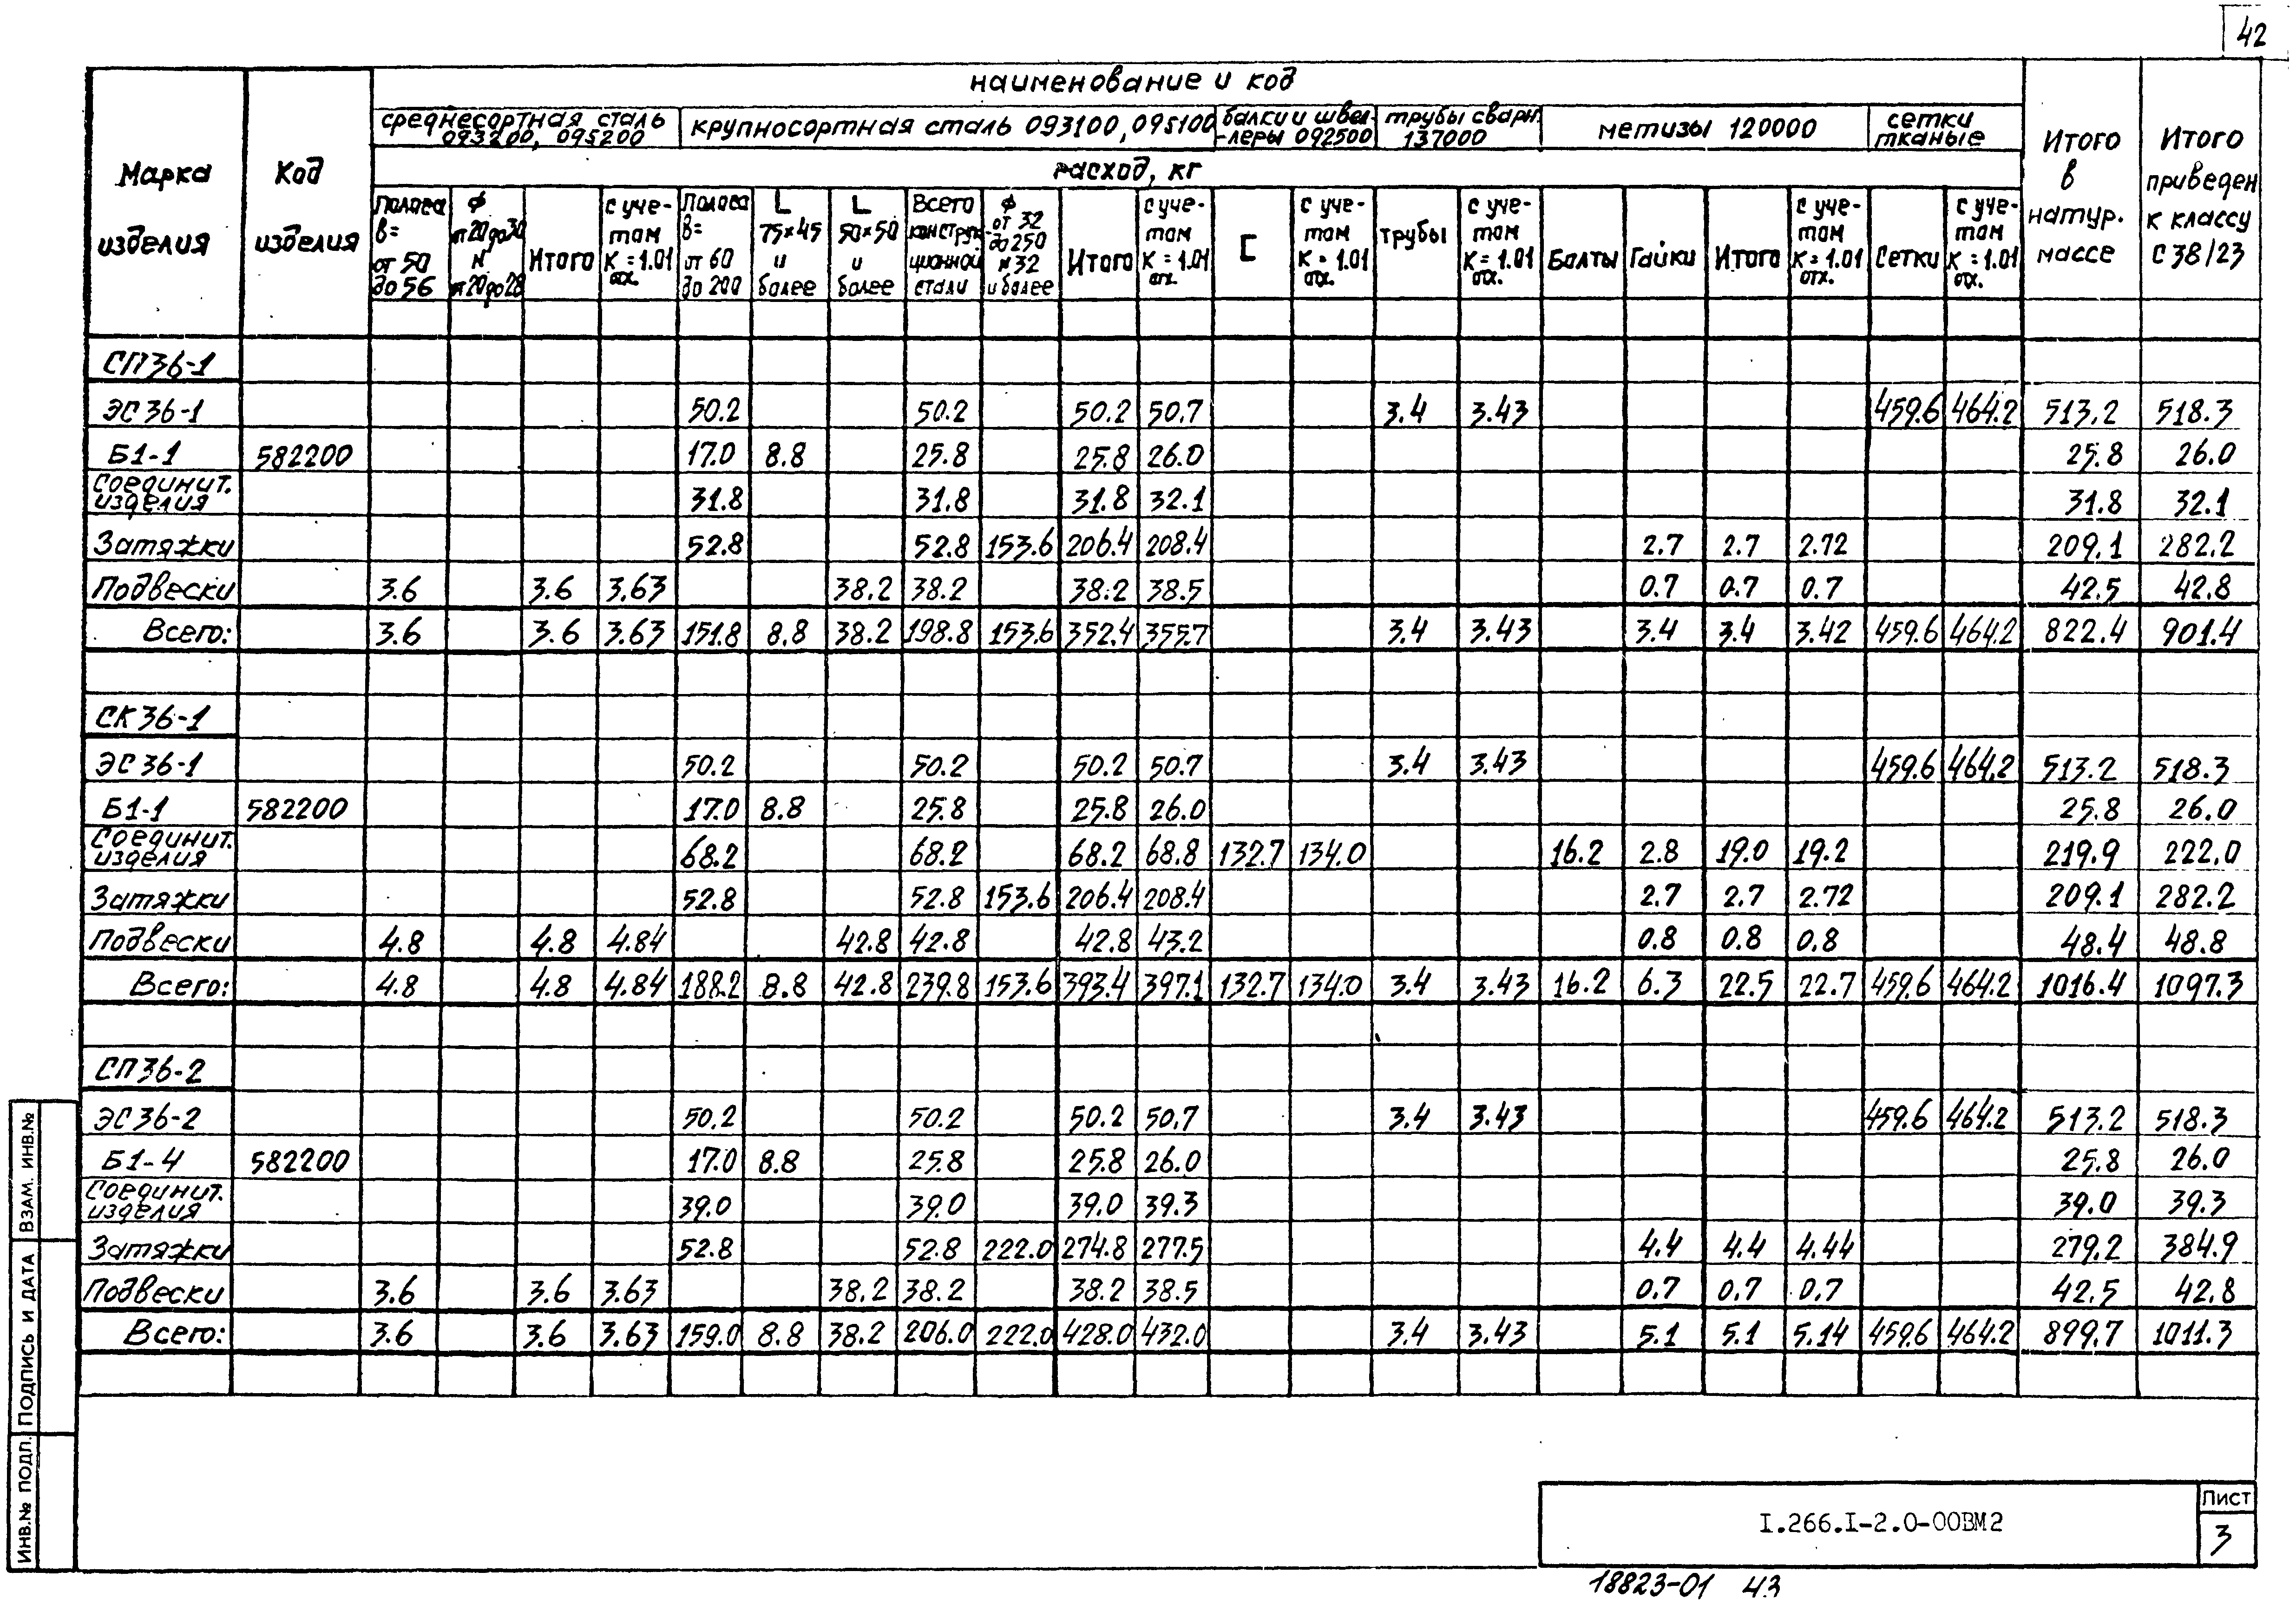 42
наименование и код
Марка изделия | Код изделия | среднесортная сталь 093200, 095200 | крупносортная сталь 093100, 095100 | балки и швел-леры 092500 | трубы сварн. 137000 | метизы 120000 | сетки тканые | Итого в натур. массе | Итого приведен к классу С38/23
расход, кг
Полоса в= от 50 до 56 | ф от 20 до 30 и от 20 до 28 | Итого | с уче-том К=1.01 отх. | Полоса в= от 60 до 200 | L 75×45 и более | L 50×50 и более | Всего конструк-ционной стали | ф от 32 до 250 и 32 и более | Итого | с уче-том К=1.01 отх. | [ | с уче-том К=1.01 отх. | трубы | с уче-том К=1.01 отх. | Болты | Гайки | Итого | с уче-том К=1.01 отх. | Сетки | с уче-том К=1.01 отх.
СП36-1
ЭС36-1 50.2 50.2 50.2 50.7 3.4 3.43 459.6 464.2 513.2 518.3
Б1-1 582200 17.0 8.8 25.8 25.8 26.0 25.8 26.0
Соединит. изделия 31.8 31.8 31.8 32.1 31.8 32.1
Затяжки 52.8 52.8 153.6 206.4 208.4 2.7 2.7 2.72 209.1 282.2
Подвески 3.6 3.6 3.63 38.2 38.2 38.2 38.5 0.7 0.7 0.7 42.5 42.8
Всего: 3.6 3.6 3.63 151.8 8.8 38.2 198.8 153.6 352.4 355.7 3.4 3.43 3.4 3.4 3.42 459.6 464.2 822.4 901.4
СК36-1
ЭС36-1 50.2 50.2 50.2 50.7 3.4 3.43 459.6 464.2 513.2 518.3
Б1-1 582200 17.0 8.8 25.8 25.8 26.0 25.8 26.0
Соединит. изделия 68.2 68.2 68.2 68.8 132.7 134.0 16.2 2.8 19.0 19.2 219.9 222.0
Затяжки 52.8 52.8 153.6 206.4 208.4 2.7 2.7 2.72 209.1 282.2
Подвески 4.8 4.8 4.84 42.8 42.8 42.8 43.2 0.8 0.8 0.8 48.4 48.8
Всего: 4.8 4.8 4.84 188.2 8.8 42.8 239.8 153.6 393.4 397.1 132.7 134.0 3.4 3.43 16.2 6.3 22.5 22.7 459.6 464.2 1016.4 1097.3
СП36-2
ЭС36-2 50.2 50.2 50.2 50.7 3.4 3.43 459.6 464.2 513.2 518.3
Б1-4 582200 17.0 8.8 25.8 25.8 26.0 25.8 26.0
Соединит. изделия 39.0 39.0 39.0 39.3 39.0 39.3
Затяжки 52.8 52.8 222.0 274.8 277.5 4.4 4.4 4.44 279.2 384.9
Подвески 3.6 3.6 3.63 38.2 38.2 38.2 38.5 0.7 0.7 0.7 42.5 42.8
Всего: 3.6 3.6 3.63 159.0 8.8 38.2 206.0 222.0 428.0 432.0 3.4 3.43 5.1 5.1 5.14 459.6 464.2 899.7 1011.3
ИНВ.№ ПОДЛ. ПОДПИСЬ И ДАТА ВЗАМ. ИНВ.№
I.266.I-2.0-00ВМ2
Лист
3
18823-01 43